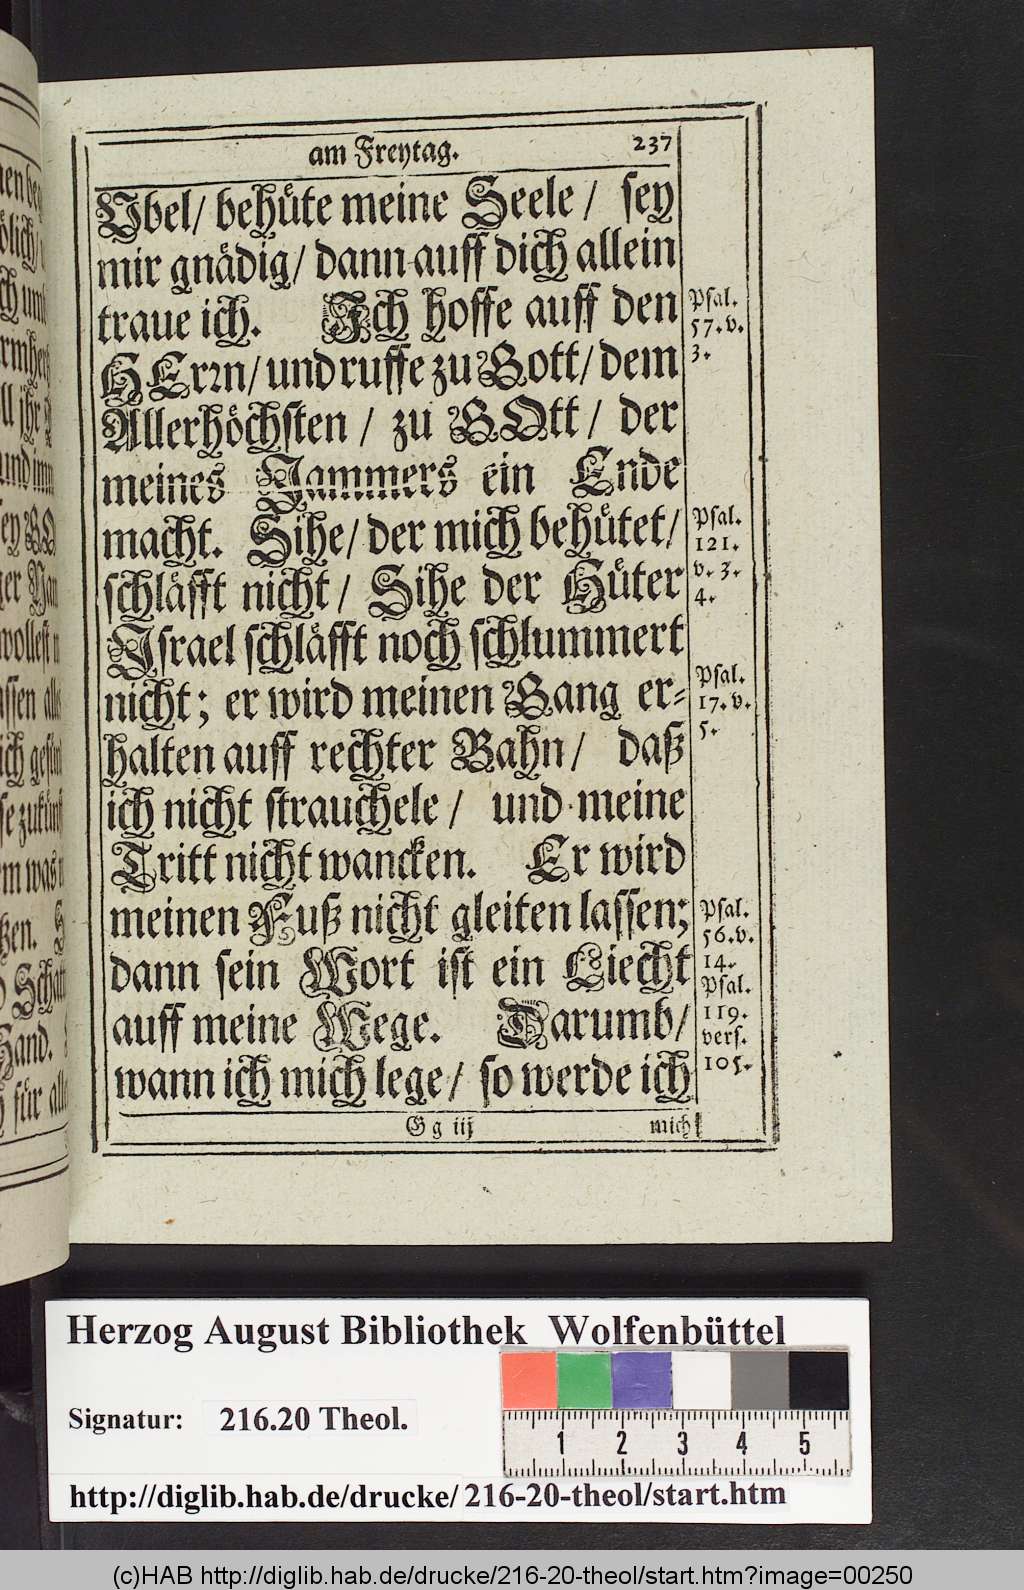 am Freytag. 237
Ubel/ behüte meine Seele/ sey
mir gnädig/ dann auff dich allein
traue ich. Ich hoffe auff den
HErrn/ und ruffe zu Gott/ dem
Allerhöchsten/ zu GOtt/ der
meines Jammers ein Ende
macht. Sihe/ der mich behütet/
schläfft nicht/ Sihe der Hüter
Israel schläfft noch schlummert
nicht; er wird meinen Gang er-
halten auff rechter Bahn/ daß
ich nicht strauchele/ und meine
Tritt nicht wancken. Er wird
meinen Fuß nicht gleiten lassen;
dann sein Wort ist ein Liecht
auff meine Wege. Darumb/
wann ich mich lege/ so werde ich
Gg iij mich
Psal.
57. v.
3.
Psal.
121.
v. 3.
4.
Psal.
17. v.
5.
Psal.
56. v.
14.
Psal.
119.
vers.
105.
Herzog August Bibliothek Wolfenbüttel
Signatur: 216.20 Theol.
1 2 3 4 5
http://diglib.hab.de/drucke/ 216-20-theol/start.htm
(c)HAB http://diglib.hab.de/drucke/216-20-theol/start.htm?image=00250